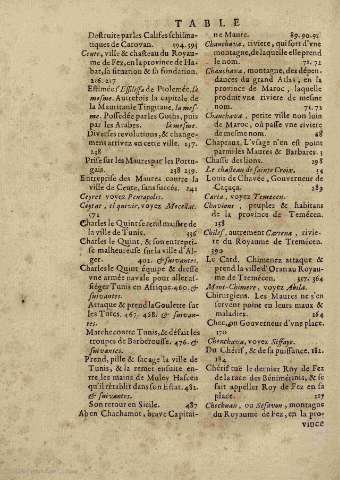 TABLE
Destruite par les Califes schisma-
tiques de Carovan. 194. 594
Ceute, ville & chasteau du Royau-
me de Fez, en la province de Ha-
bat, sa situation & sa fondation.
216. 217
Estimée de Ptolemée, la
mesme. Autrefois la capitale de
la Mauritanie Tingitane, la mes-
me. Possedée par les Gots, puis
par les Arabes. la mesme.
Diverses revolutions, & change-
ment arrivez en cette ville. 217.
218
Prise sur les Maures par les Portu-
gais. 238 239.
Entreprise des Maures contre la
ville de Ceute, sans succés. 241
Ceyret voyez Pentapolis.
voyez
Charles le Quint se rend maistre de
la ville de Tunis. 536
Charles le Quint, & son entrepri-
se malheureuse sur la ville d'Al-
ger. 402. & suivantes.
Charles le Quint équipe & dresse
vne armée navale pour aller as-
siéger Tunis en Afrique. 460. &
suivantes
Attaque & prend la Goulette sur
les Turcs. 467. 468. & suivan-
tes.
Marche contre Tunis, & défait les
troupes de Barberousse. 476. &
suivantes.
Prend, pille & sacage la ville de
Tunis, & la remet ensuite en-
tre les mains de Muley Hascen
qu'il rétablit dans son Estat. 481.
& suivantes.
Son retour en Sicile. 487
Aben Chachamot, brave Capitai-
ne Maure. 89. 90. 91
Chauchava, riviere, qui sort d'vne
montagne, de laquelle elle prend
le nom. 71. 72
Chauchava, montagne, des dépen-
dances du grand Atlas, en la
province de Maroc, laquelle
produit vne riviere de mesme
nom. 71. 72
Chauchava, petite ville non loin
de Maroc, où passe vne riviere
de mesme nom. 48
Chapeaux. L'vsage n'en est point
parmi les Maures & Barbares. 3
Chasse des lions. 298
Le chasteau de sainte Croix. 34
Louis de Chavée, Gouverneur de
Caçaça. 289
Caria, voyez Temécen.
peuples & habitans
de la province de Temécen.
158
autrement Carrena, rivie-
re du Royaume de Tremécen.
390
Le Card. Chimenez attaque &
prend la ville d'Oran au Royau-
me de Tremécen. 357. 364
Mont-Chimere, voyez Abila.
Chirurgiens. Les Maures ne s'en
servent point en leurs maux &
maladies. 264
Choc, ou Gouverneur d'vne place.
170
Chenchava, voyez Siffaye.
Du Chérif, & de sa puissance. 182.
184
Chérif tuë le dernier Roy de Fez
de la race des Bénimérinis, & se
fait appeller Roy de Fez en la
place. 117
Chechuan, ou Sefavon, montagne
du Royaume de Fez, en la pro-
vince